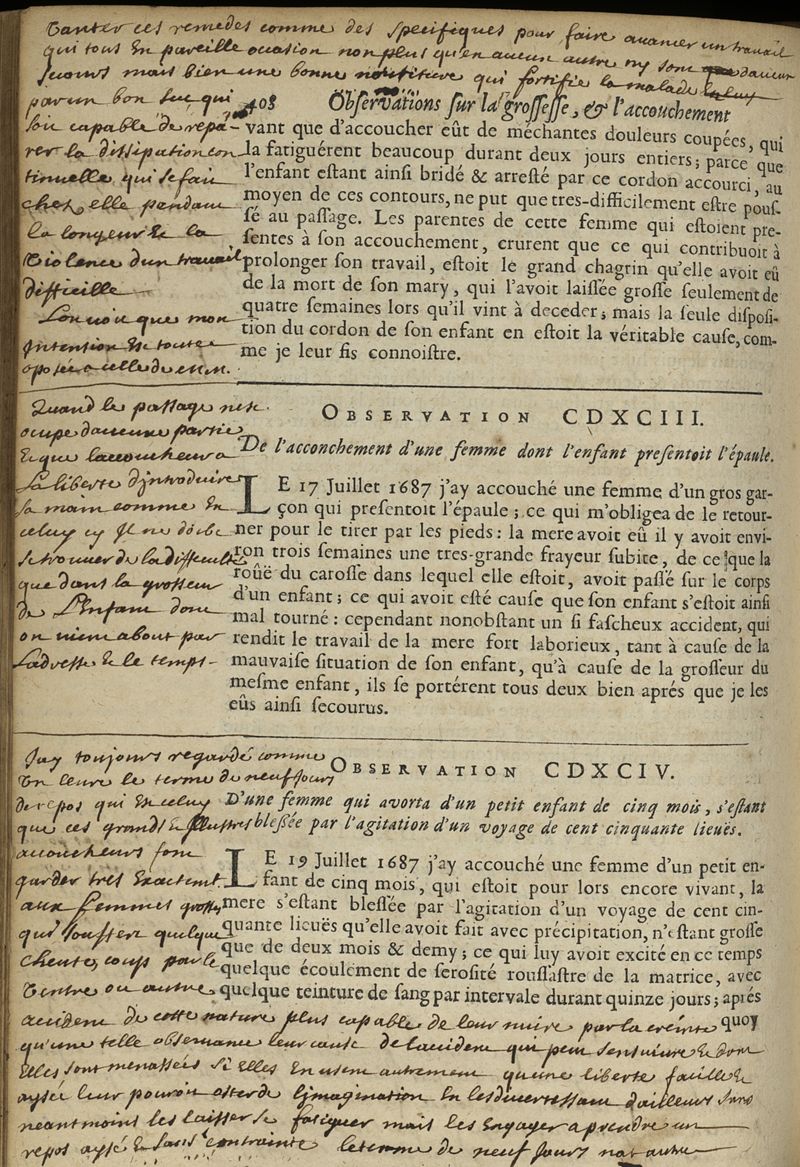 Vanter ces remedes comme des specifiques pour faire avancer un travail
qui tous En pareille occasion non plus qu'en aucun autre ny sont d'aucun
secours mais bien une bonne nouriture qui fortifie la malade
par un bon suc qui
soit capable de repa-
rer la dissipation con
tinuelle qui se fait
chez elle pendant
la longeur & la
Violence d'un travail
difficille
Lon voit que mon
Intention Est toute
oposée a celle de Mr M.
408 Observations sur la grossesse, & l'accouchement
vant que d'accoucher eût de méchantes douleurs coupées, qui
la fatiguérent beaucoup durant deux jours entiers; parce que
l'enfant estant ainsi bridé & arresté par ce cordon accourci, au
moyen de ces contours, ne put que tres-difficilement estre pous-
sé au passage. Les parentes de cette femme qui estoient pre-
sentes à son accouchement, crurent que ce qui contribuoit à
prolonger son travail, estoit le grand chagrin qu'elle avoit eû
de la mort de son mary, qui l'avoit laissée grosse seulement de
quatre semaines lors qu'il vint à deceder; mais la seule disposi-
tion du cordon de son enfant en estoit la véritable cause, com-
me je leur fis connoistre.
Quand le passage n'est
ocupé d'aucune partie
& que laccoucheur a
La liberté d'introduire
sa main comme En
celuy cy Il ne doibt
se trouver de la difficulté
que dans la grosseur
de L'Enfant dont
on vient a bout par
Ladresse & le temps-
OBSERVATION CDXCIII.
De l'acconchement d'une femme dont l'enfant presentoit l'épaule.
LE 17 Juillet 1687 j'ay accouché une femme d'un gros gar-
çon qui presentoit l'épaule; ce qui m'obligea de le retour-
ner pour le tirer par les pieds: la mere avoit eû il y avoit envi-
ron trois semaines une tres-grande frayeur subite, de ce que la
rouë du carosse dans lequel elle estoit, avoit passé sur le corps
d'un enfant; ce qui avoit esté cause que son enfant s'estoit ainsi
mal tourné: cependant nonobstant un si fascheux accident, qui
rendit le travail de la mere fort laborieux, tant à cause de la
mauvaise situation de son enfant, qu'à cause de la grosseur du
mesme enfant, ils se portérent tous deux bien aprés que je les
eûs ainsi secourus.
Jay toujours regardé comme
Un leure le terme de neuf jours
de repos qui Est celuy
que ces grands & Illustres
accoucheurs font
garder tres Exactemt.
aux femmes grosses
qui souffrent quelque
cheute, coups par le
Ventre ou autre
OBSERVATION CDXCIV.
D'une femme qui avorta d'un petit enfant de cinq mois, s'estant
blessée par l'agitation d'un voyage de cent cinquante lieuës.
LE 19 Juillet 1687 j'ay accouché une femme d'un petit en-
fant de cinq mois, qui estoit pour lors encore vivant, la
mere s'estant blessée par l'agitation d'un voyage de cent cin-
quante lieuës qu'elle avoit fait avec précipitation, n'estant grosse
que de deux mois & demy; ce qui luy avoit excité en ce temps
quelque écoulement de serosité roussastre de la matrice, avec
quelque teinture de sang par intervale durant quinze jours; aprés
quoy
accident de cette nature plus capable de leur nuire par la creinte
qu'une telle observance leur cause de laccident qui peut sensuivre & dont
Elles sont menassées si Elles En usent autrement qu'une liberté facille &
aysée leur pouroit oster de Limagination En les divertissant d'ailleurs sans
neantmoins les laisser se fatiguer mais les Engager a prendre un
repos aysé & sans contrainte le terme de neuf jours nat autre